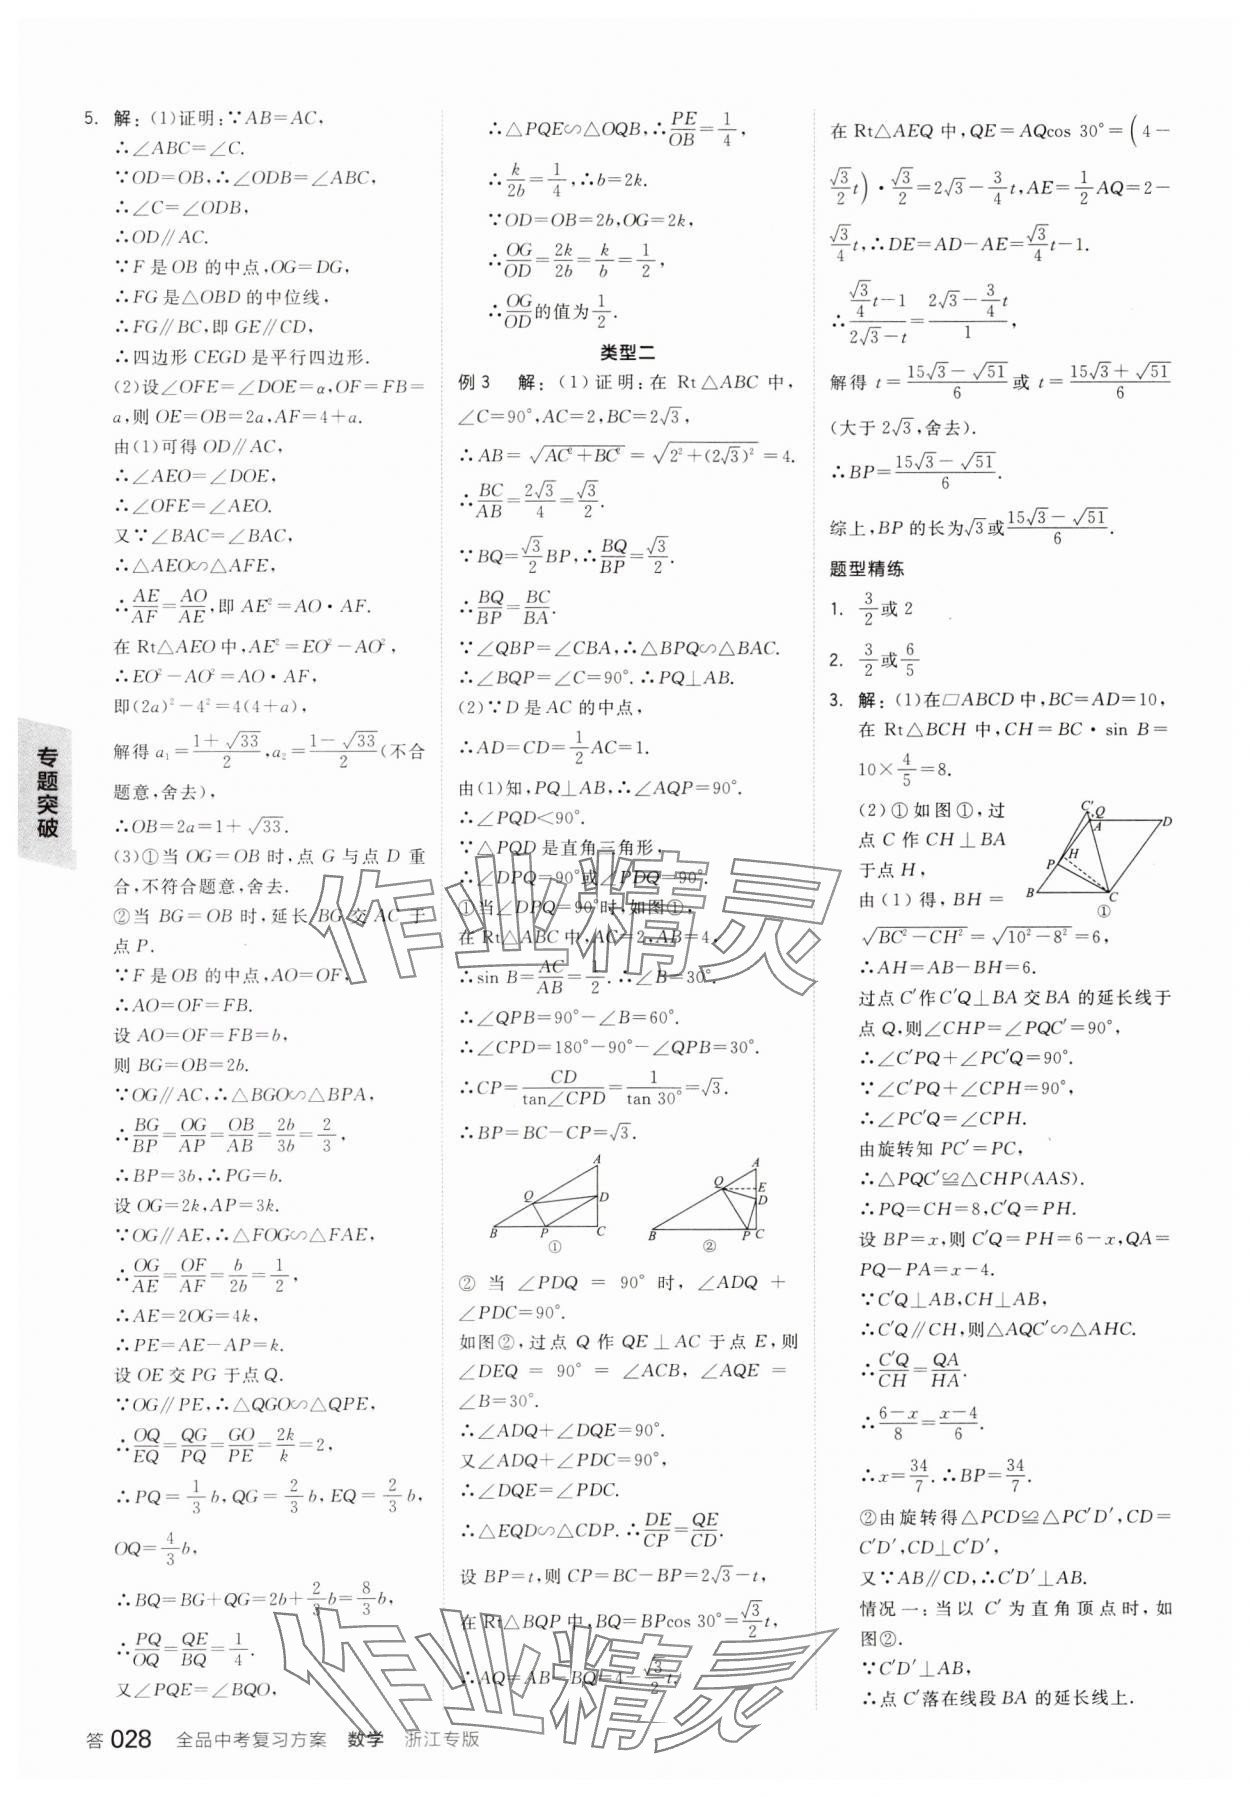 5. 解:(1)证明:∵AB=AC,
∴∠ABC=∠C.
∵OD=OB,∴∠ODB=∠ABC,
∴∠C=∠ODB,
∴OD∥AC.
∵F是OB的中点,OG=DG,
∴FG是△OBD的中位线,
∴FG∥BC,即GE∥CD,
∴四边形CEGD是平行四边形.
(2)设∠OFE=∠DOE=α,OF=FB=
a,则OE=OB=2a,AF=4+a.
由(1)可得OD∥AC,
∴∠AEO=∠DOE,
∴∠OFE=∠AEO.
又∵∠BAC=∠BAC,
∴△AEO∽△AFE,
∴AE/AF=AO/AE,即AE²=AO·AF.
在Rt△AEO中,AE²=EO²-AO²,
∴EO²-AO²=AO·AF,
即(2a)²-4²=4(4+a),
解得a₁=(1+√33)/2,a₂=(1-√33)/2(不合
题意,舍去),
∴OB=2a=1+√33.
(3)①当OG=OB时,点G与点D重
合,不符合题意,舍去.
②当BG=OB时,延长BG交AC于
点P.
∵F是OB的中点,AO=OF,
∴AO=OF=FB.
设AO=OF=FB=b,
则BG=OB=2b.
∵OG∥AC,∴△BGO∽△BPA,
∴BG/BP=OG/AP=OB/AB=2b/3b=2/3,
∴BP=3b,∴PG=b.
设OG=2k,AP=3k.
∵OG∥AE,∴△FOG∽△FAE,
∴OG/AE=OF/AF=b/2b=1/2,
∴AE=2OG=4k,
∴PE=AE-AP=k.
设OE交PG于点Q.
∵OG∥PE,∴△QGO∽△QPE,
∴OQ/EQ=QG/PQ=GO/PE=2k/k=2,
∴PQ=1/3b,QG=2/3b,EQ=2/3b,
OQ=4/3b,
∴BQ=BG+QG=2b+2/3b=8/3b,
∴PQ/OQ=QE/BQ=1/4.
又∠PQE=∠BQO,
∴△PQE∽△OQB,∴PE/OB=1/4,
∴k/2b=1/4,∴b=2k.
∵OD=OB=2b,OG=2k,
∴OG/OD=2k/2b=k/b=1/2,
∴OG/OD的值为1/2.
类型二
例3 解:(1)证明:在Rt△ABC中,
∠C=90°,AC=2,BC=2√3,
∴AB=√(AC²+BC²)=√(2²+(2√3)²)=4.
∴BC/AB=2√3/4=√3/2.
∵BQ=√3/2BP,∴BQ/BP=√3/2.
∴BQ/BP=BC/BA.
∵∠QBP=∠CBA,∴△BPQ∽△BAC.
∴∠BQP=∠C=90°.∴PQ⊥AB.
(2)∵D是AC的中点,
∴AD=CD=1/2AC=1.
由(1)知,PQ⊥AB,∴∠AQP=90°.
∴∠PQD<90°.
∵△PQD是直角三角形,
∴∠DPQ=90°或∠PDQ=90°.
①当∠DPQ=90°时,如图①,
在Rt△ABC中,AC=2,AB=4,
∴sin B=AC/AB=1/2.∴∠B=30°.
∴∠QPB=90°-∠B=60°.
∴∠CPD=180°-90°-∠QPB=30°.
∴CP=CD/tan∠CPD=1/tan 30°=√3.
∴BP=BC-CP=√3.
A Q D B P C ①
A Q E D B P C ②
② 当 ∠PDQ = 90° 时, ∠ADQ +
∠PDC=90°.
如图②,过点Q作QE⊥AC于点E,则
∠DEQ = 90° = ∠ACB, ∠AQE =
∠B=30°.
∴∠ADQ+∠DQE=90°.
又∠ADQ+∠PDC=90°,
∴∠DQE=∠PDC.
∴△EQD∽△CDP.∴DE/CP=QE/CD.
设BP=t,则CP=BC-BP=2√3-t,
在Rt△BQP中,BQ=BPcos 30°=√3/2t,
∴AQ=AB-BQ=4-√3/2t,
在Rt△AEQ中,QE=AQcos 30°=(4-
√3/2t)·√3/2=2√3-3/4t,AE=1/2AQ=2-
√3/4t,∴DE=AD-AE=√3/4t-1.
∴(√3/4t-1)/(2√3-t)=(2√3-3/4t)/1,
解得t=(15√3-√51)/6或t=(15√3+√51)/6
(大于2√3,舍去).
∴BP=(15√3-√51)/6.
综上,BP的长为√3或(15√3-√51)/6.
题型精练
1. 3/2或2
2. 3/2或6/5
3. 解:(1)在□ABCD中,BC=AD=10,
在Rt△BCH中,CH=BC·sin B=
10×4/5=8.
(2)①如图①,过
点C作CH⊥BA
于点H,
由(1)得,BH=
C′ Q A D P H B C ①
√(BC²-CH²)=√(10²-8²)=6,
∴AH=AB-BH=6.
过点C′作C′Q⊥BA交BA的延长线于
点Q,则∠CHP=∠PQC′=90°,
∴∠C′PQ+∠PC′Q=90°.
∵∠C′PQ+∠CPH=90°,
∴∠PC′Q=∠CPH.
由旋转知PC′=PC,
∴△PQC′≌△CHP(AAS).
∴PQ=CH=8,C′Q=PH.
设BP=x,则C′Q=PH=6-x,QA=
PQ-PA=x-4.
∵C′Q⊥AB,CH⊥AB,
∴C′Q∥CH,则△AQC′∽△AHC.
∴C′Q/CH=QA/HA.
∴(6-x)/8=(x-4)/6.
∴x=34/7.∴BP=34/7.
②由旋转得△PCD≌△PC′D′,CD=
C′D′,CD⊥C′D′,
又∵AB∥CD,∴C′D′⊥AB.
情况一:当以C′为直角顶点时,如
图②.
∵C′D′⊥AB,
∴点C′落在线段BA的延长线上.
专题突破
作业精灵
作业精灵
答028 全品中考复习方案 数学 浙江专版